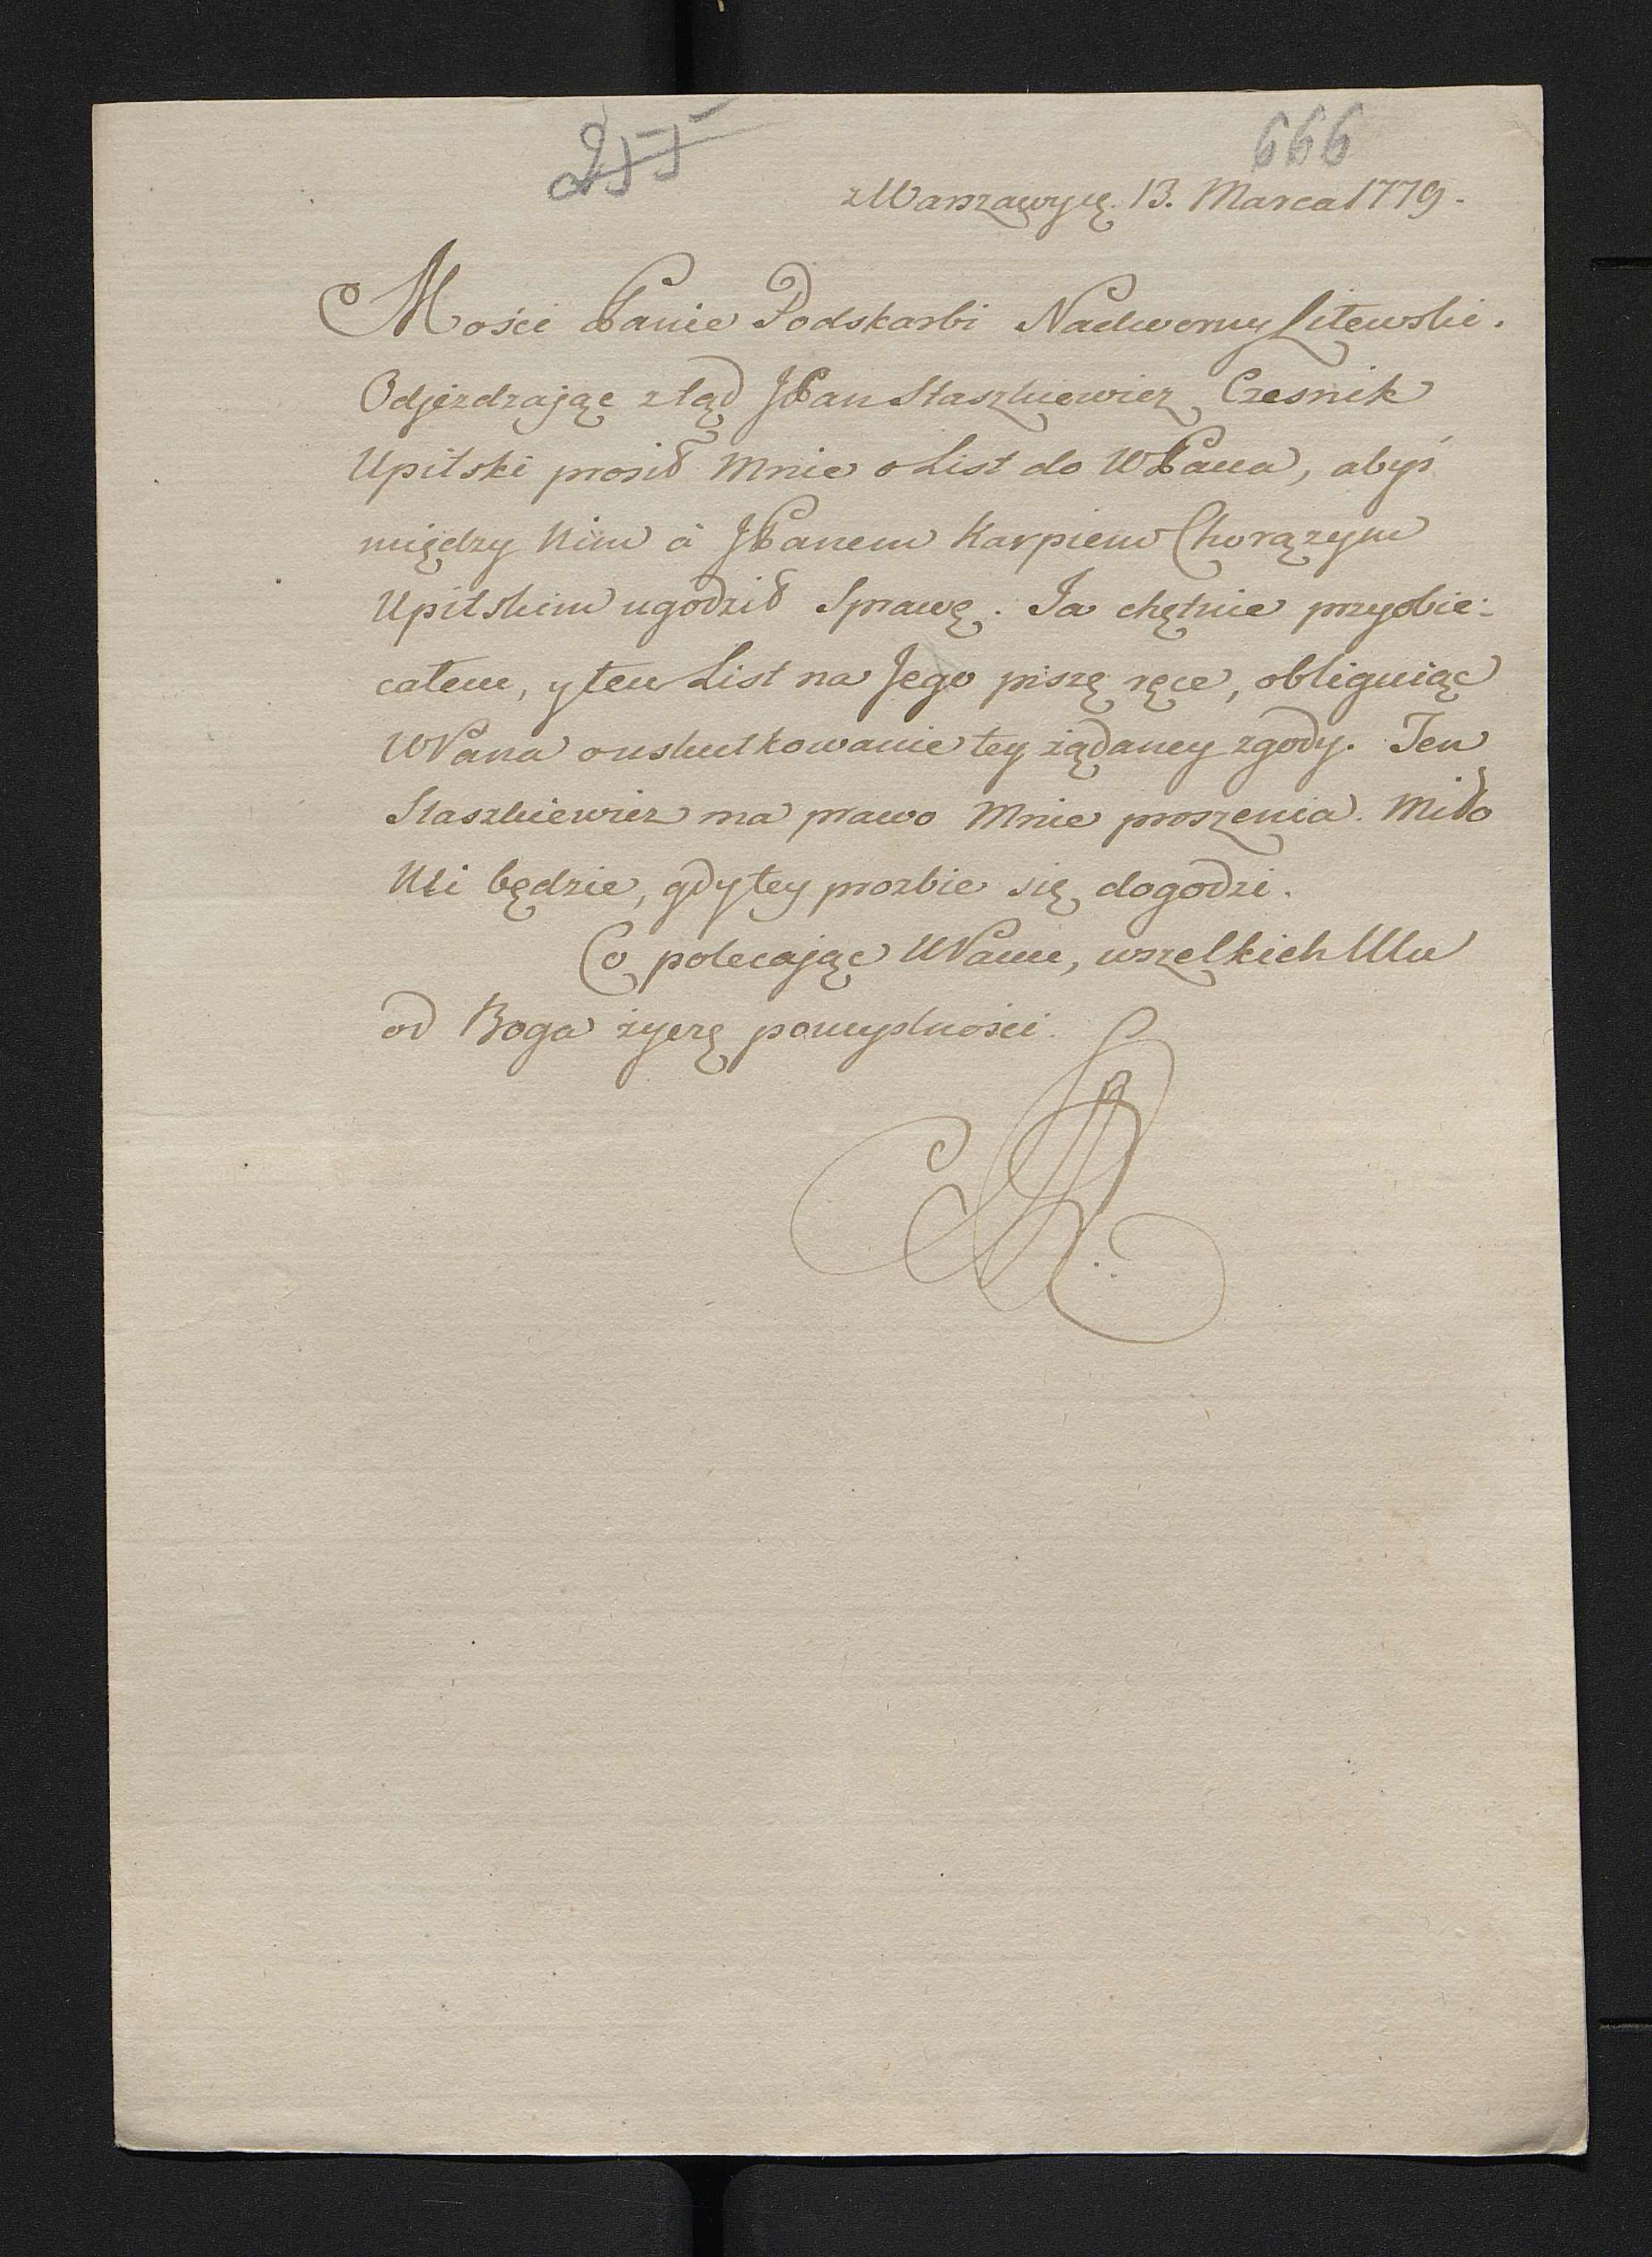 255
666
z Warszawy d. 13. Marca 1779.
Mości Panie Podskarbi Nadworny Litewski.
Odjeżdzaiąc ztąd JPan Staszkiewicz Czesnik
Upitski prosił Mnie o List do WPana, abyś
między Nim à JPanem Karpiem Chorązym
Upitskim ugodził Sprawę. Ja chętnie przyobie:
całem, y ten List na Jego piszę ręce, obliguiąc
WPana o uskutkowanie tey żądaney zgody. Ten
Staszkiewicz ma prawo Mnie proszenia. Miło
Mi będzie, gdy tey prozbie się dogodzi.
Co polecając WPanu, wszelkich Mu
od Boga życzę pomyslnosci.